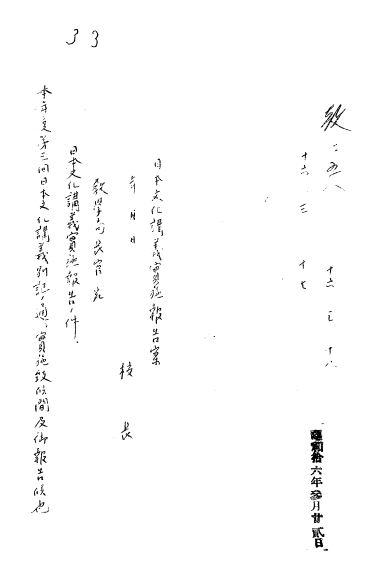 33
教二五八
十六、三、十七
十六、三、十八
昭和拾六年参月廿貳日
日本文化講義實施報告案
年月日
校長
教學局長官宛
日本文化講義實施報告ノ件
本年度第三回日本文化講義別記ノ通、實施致候間及御報告候也